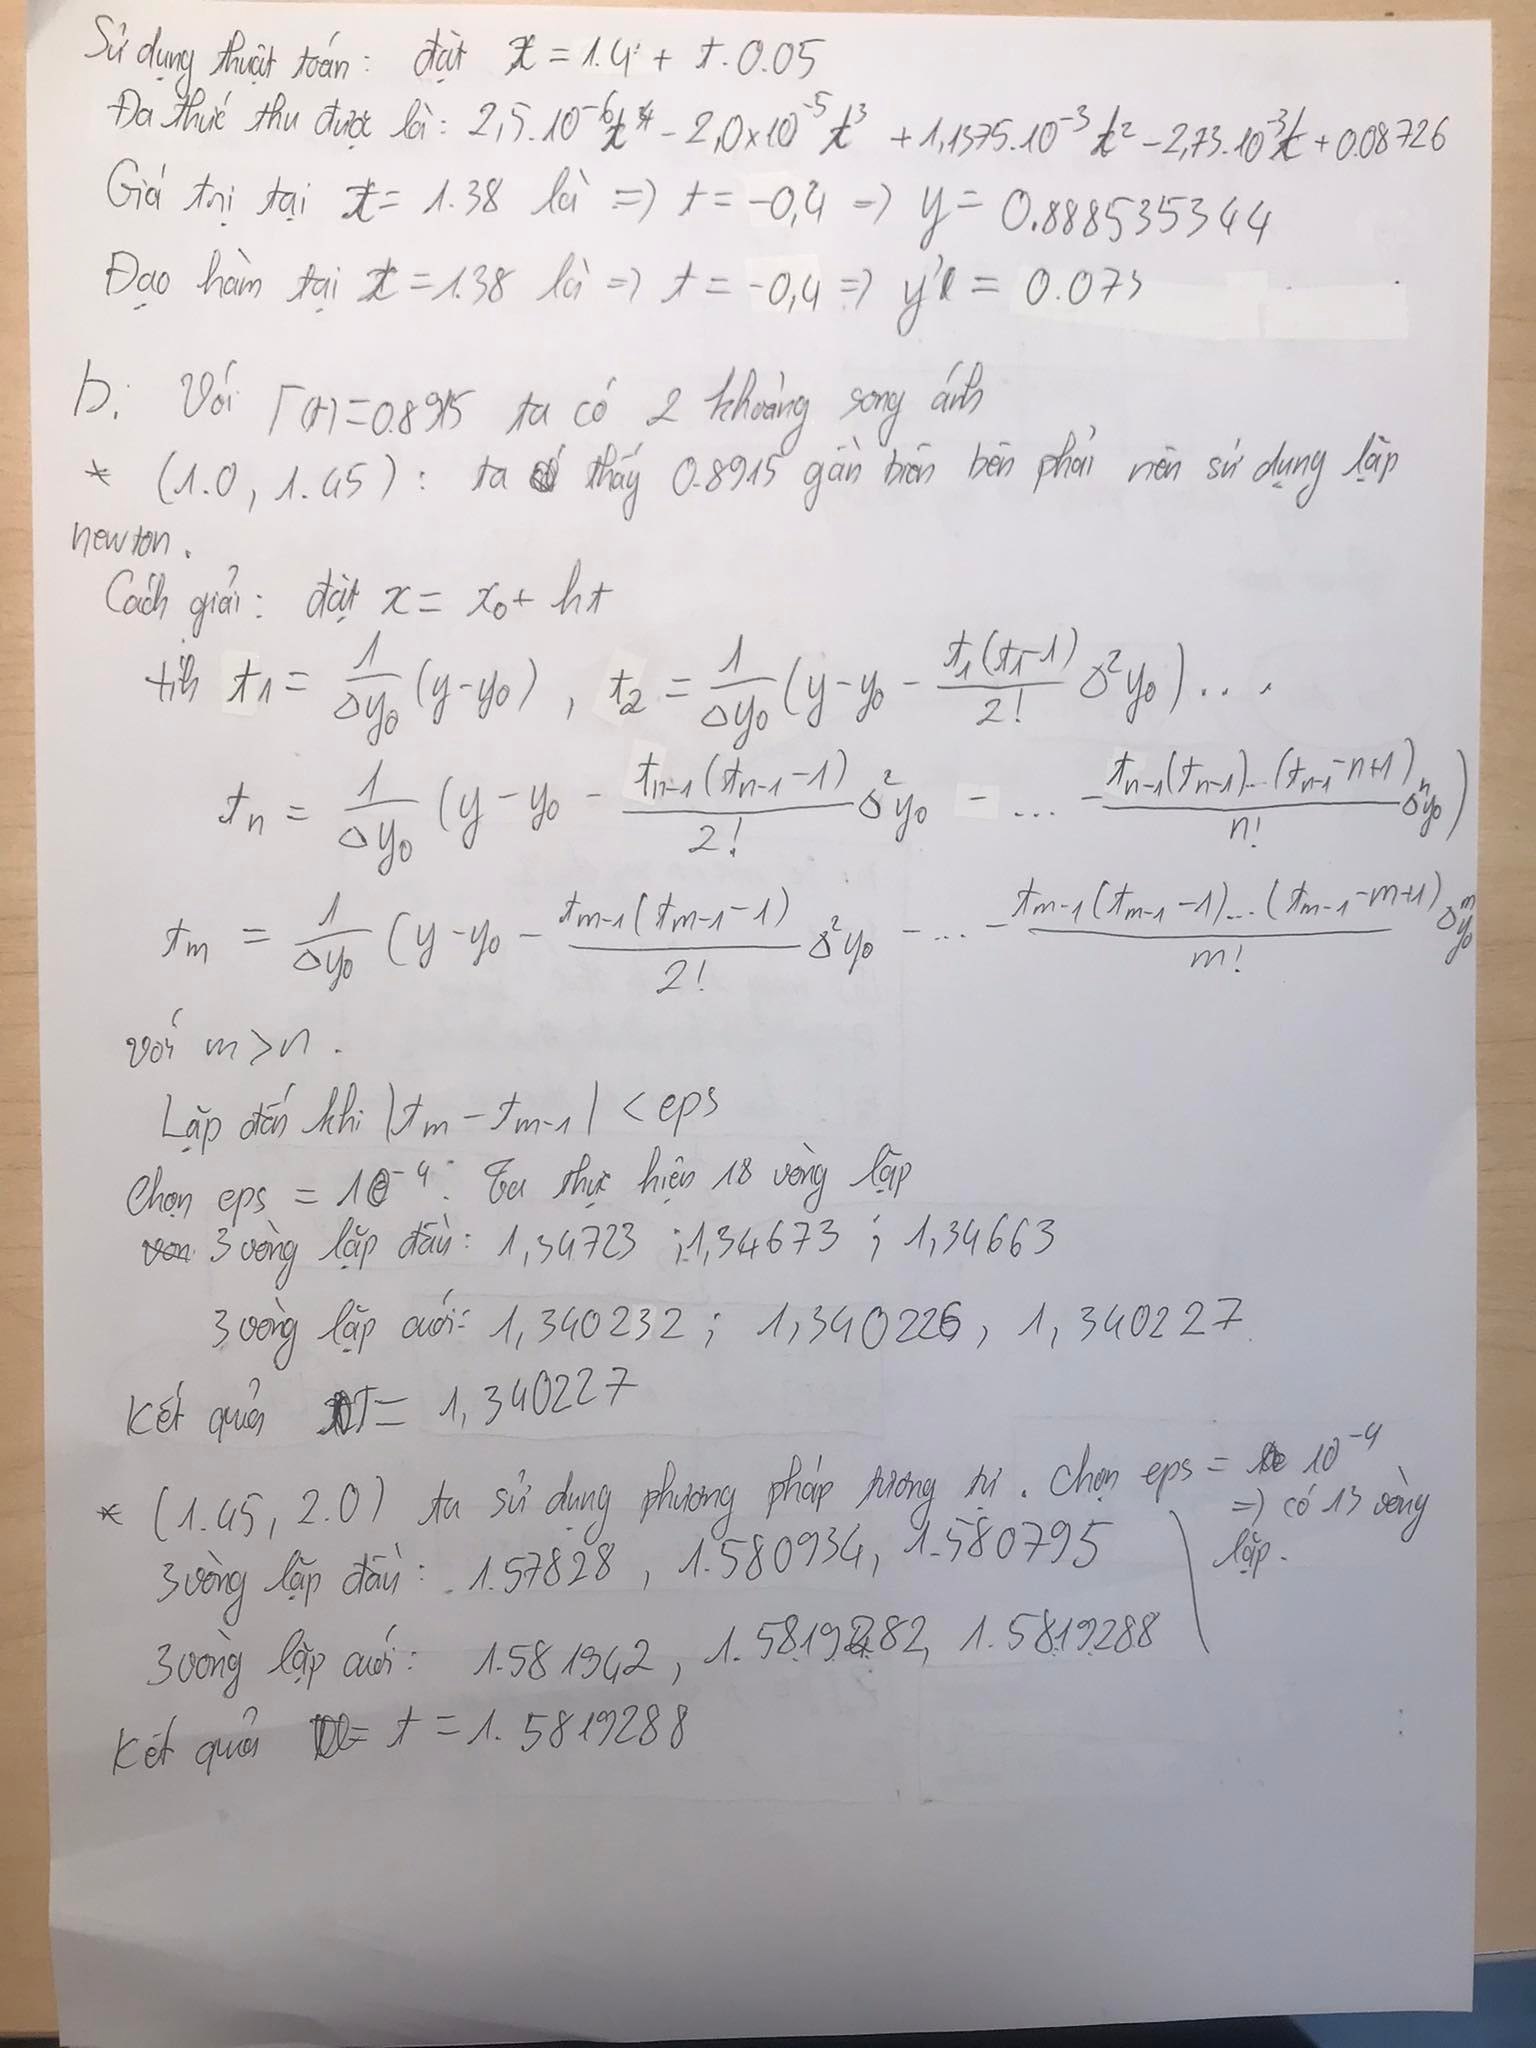 Sử dụng thuật toán: đặt x = 1.4 + t.0.05
Đa thức thu được là: 2,5.10^-6 t^4 - 2,0×10^-5 t^3 + 1,1375.10^-3 t^2 - 2,73.10^-3 t + 0.08726
Giá trị tại x = 1.38 là => t = -0,4 => y = 0.888535344
Đạo hàm tại x = 1.38 là => t = -0,4 => y' = 0.073
b. Với Γ(t) = 0.8915 ta có 2 khoảng song ánh
* (1.0, 1.45): ta thấy 0.8915 gần biên bên phải nên sử dụng lặp
newton.
Cách giải: đặt x = x₀ + ht
tính t₁ = 1/Δy₀ (y - y₀), t₂ = 1/Δy₀ (y - y₀ - t₁(t₁-1)/2! Δ²y₀) ...
tₙ = 1/Δy₀ (y - y₀ - tₙ₋₁(tₙ₋₁ - 1)/2! Δ²y₀ - ... - tₙ₋₁(tₙ₋₁)...(tₙ₋₁ - n+1)/n! Δⁿy₀)
tₘ = 1/Δy₀ (y - y₀ - tₘ₋₁(tₘ₋₁ - 1)/2! Δ²y₀ - ... - tₘ₋₁(tₘ₋₁ - 1)...(tₘ₋₁ - m+1)/m! Δᵐy₀
với m > n.
Lặp đến khi |tₘ - tₘ₋₁| < eps
Chọn eps = 10^-4: Ta thực hiện 18 vòng lặp
3 vòng lặp đầu: 1,34723 ; 1,34673 ; 1,34663
3 vòng lặp cuối: 1,340232 ; 1,340226, 1,340227
Kết quả T = 1,340227
* (1.45, 2.0) ta sử dụng phương pháp tương tự. Chọn eps = 10^-4
=> có 13 vòng
lặp.
3 vòng lặp đầu: 1.57828, 1.580934, 1.580795
3 vòng lặp cuối: 1.581942, 1.5819282, 1.5819288
Kết quả t = 1.5819288